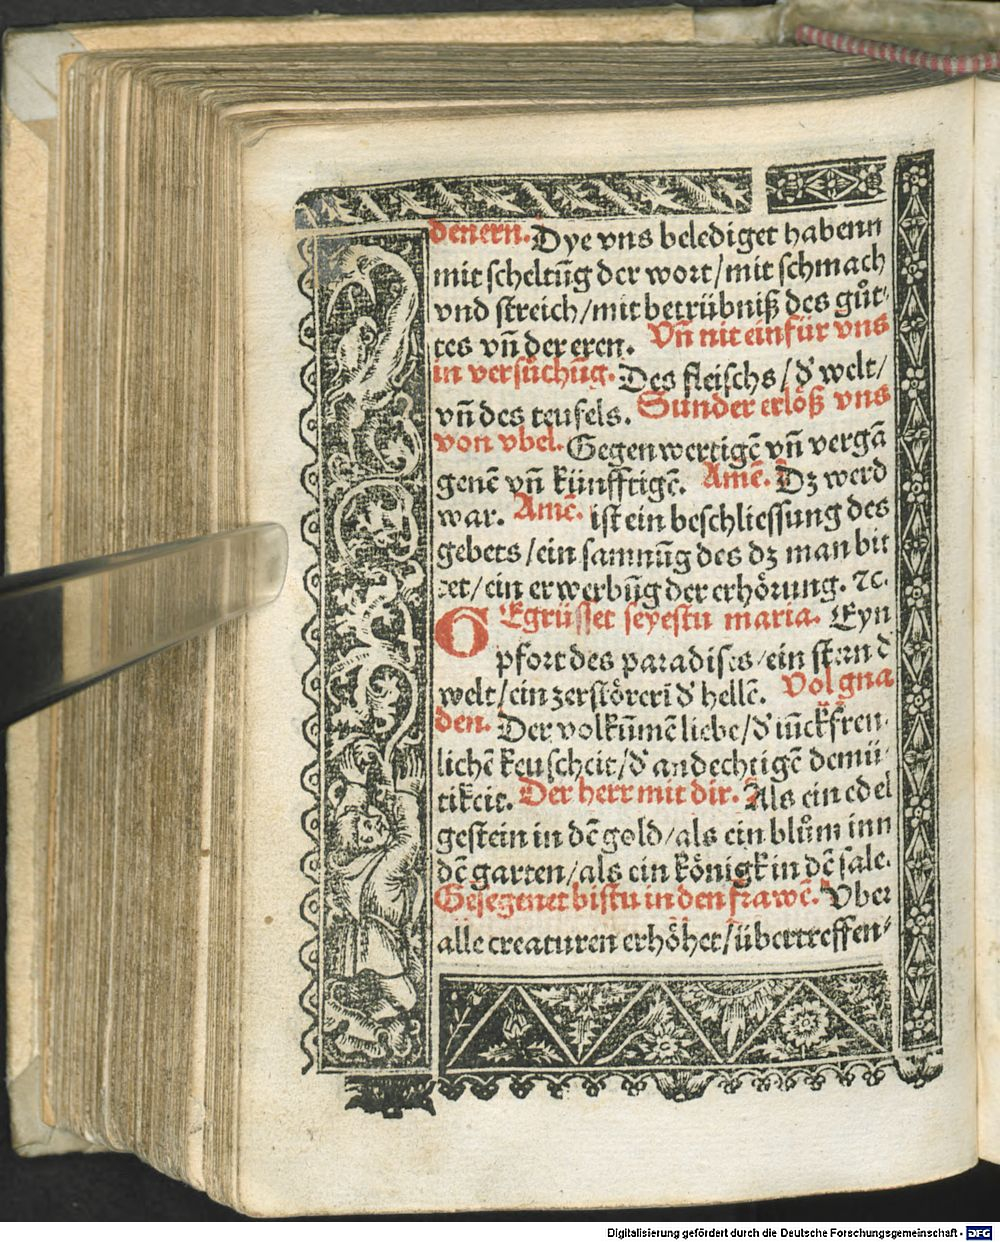 denern. Dye vns belediget habenn
mit scheltũg der wort/mit schmach
vnd streich/mit betrübniß des gůt⸗
tes vñ der eren. Vñ nit einfür vns
in versůchũg. Des fleischs/ď welt/
vñ des teufels. Sunder erlöß vns
von vbel. Gegenwertigẽ vñ vergã
genẽ vñ künfftigẽ. Amẽ. Dz werd
war. Amẽ. ist ein beschliessung des
gebets/ein samnũg des dz man bit
tet/ein erwerbũg der erhörung. ⁊c.
GEgrüsset seyestu maria. Eyn
pfort des paradises/ein stern ď
welt/ein zerstörerĩ ď hellẽ. Vol gna
den. Der volkũmẽ liebe/ď iũckfren⸗
lichẽ keuscheit/ď andechtigẽ demü⸗
tikeit. Der herr mit dir. Als ein edel
gestein in dẽ gold/als ein blům inn
dẽ garten/als ein königk in dẽ sale.
Gesegenet bistu in den frawẽ. Vber
alle creaturen erhöhet/übertreffen⸗
Digitalisierung gefördert durch die Deutsche Forschungsgemeinschaft - DFG